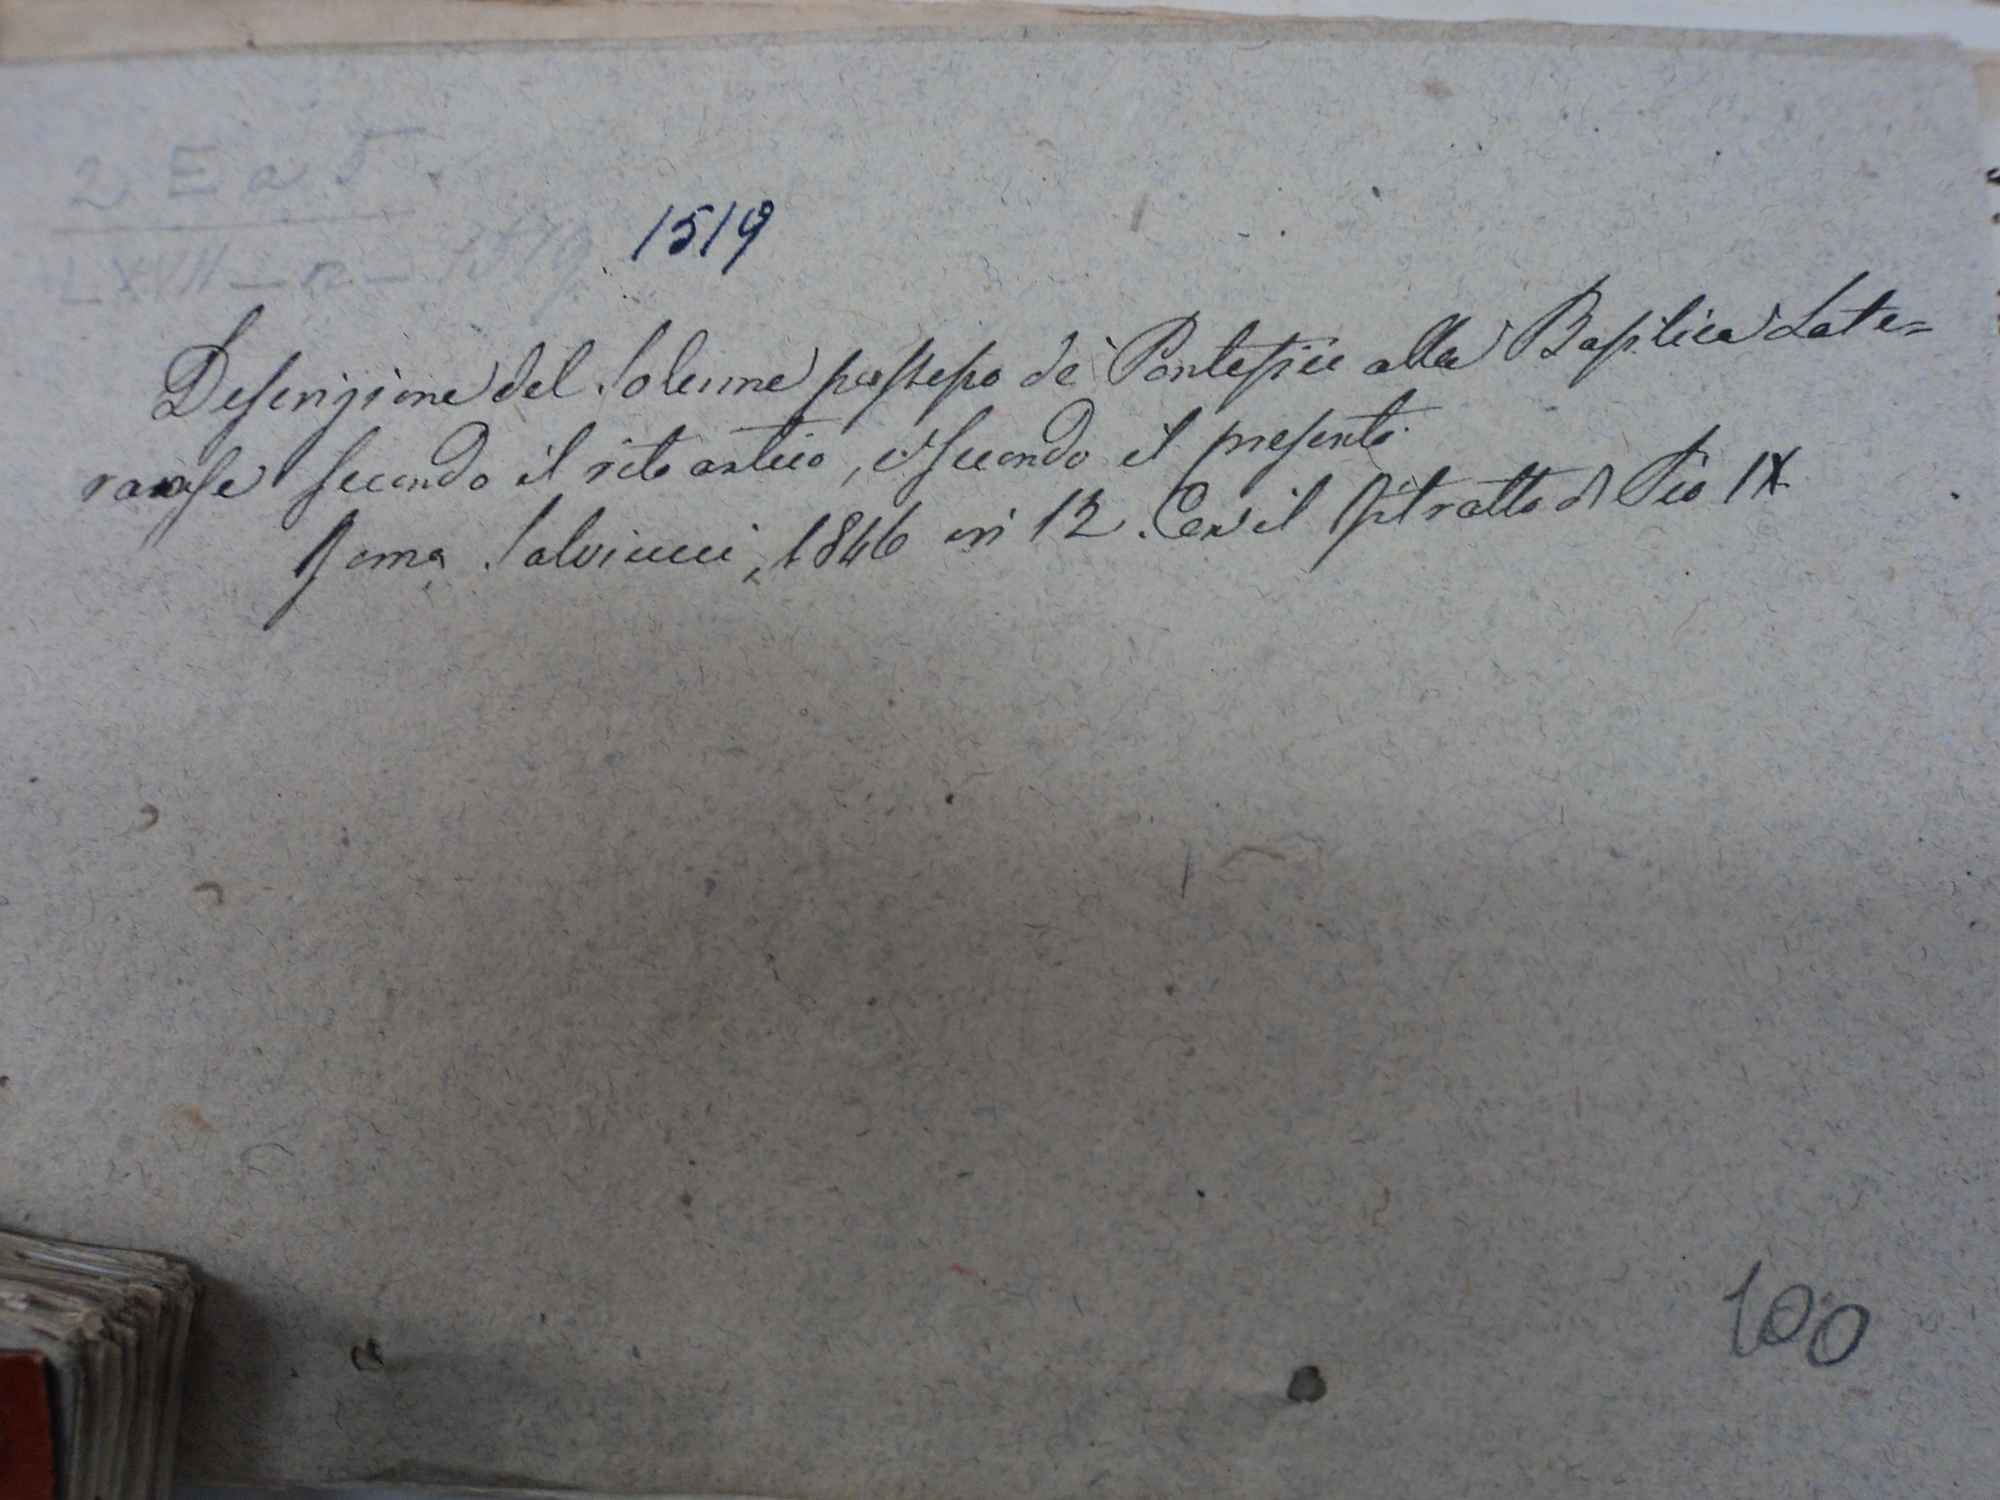 2 E a 5
LXVII - n - 1519 1519
Descrizione del Solenne possesso de' Pontefici alla Basilica Late=
ranese secondo il rito antico, e secondo il presente
Roma, Salviucci, 1846 in 12. Con il Ritratto di Pio IX
100